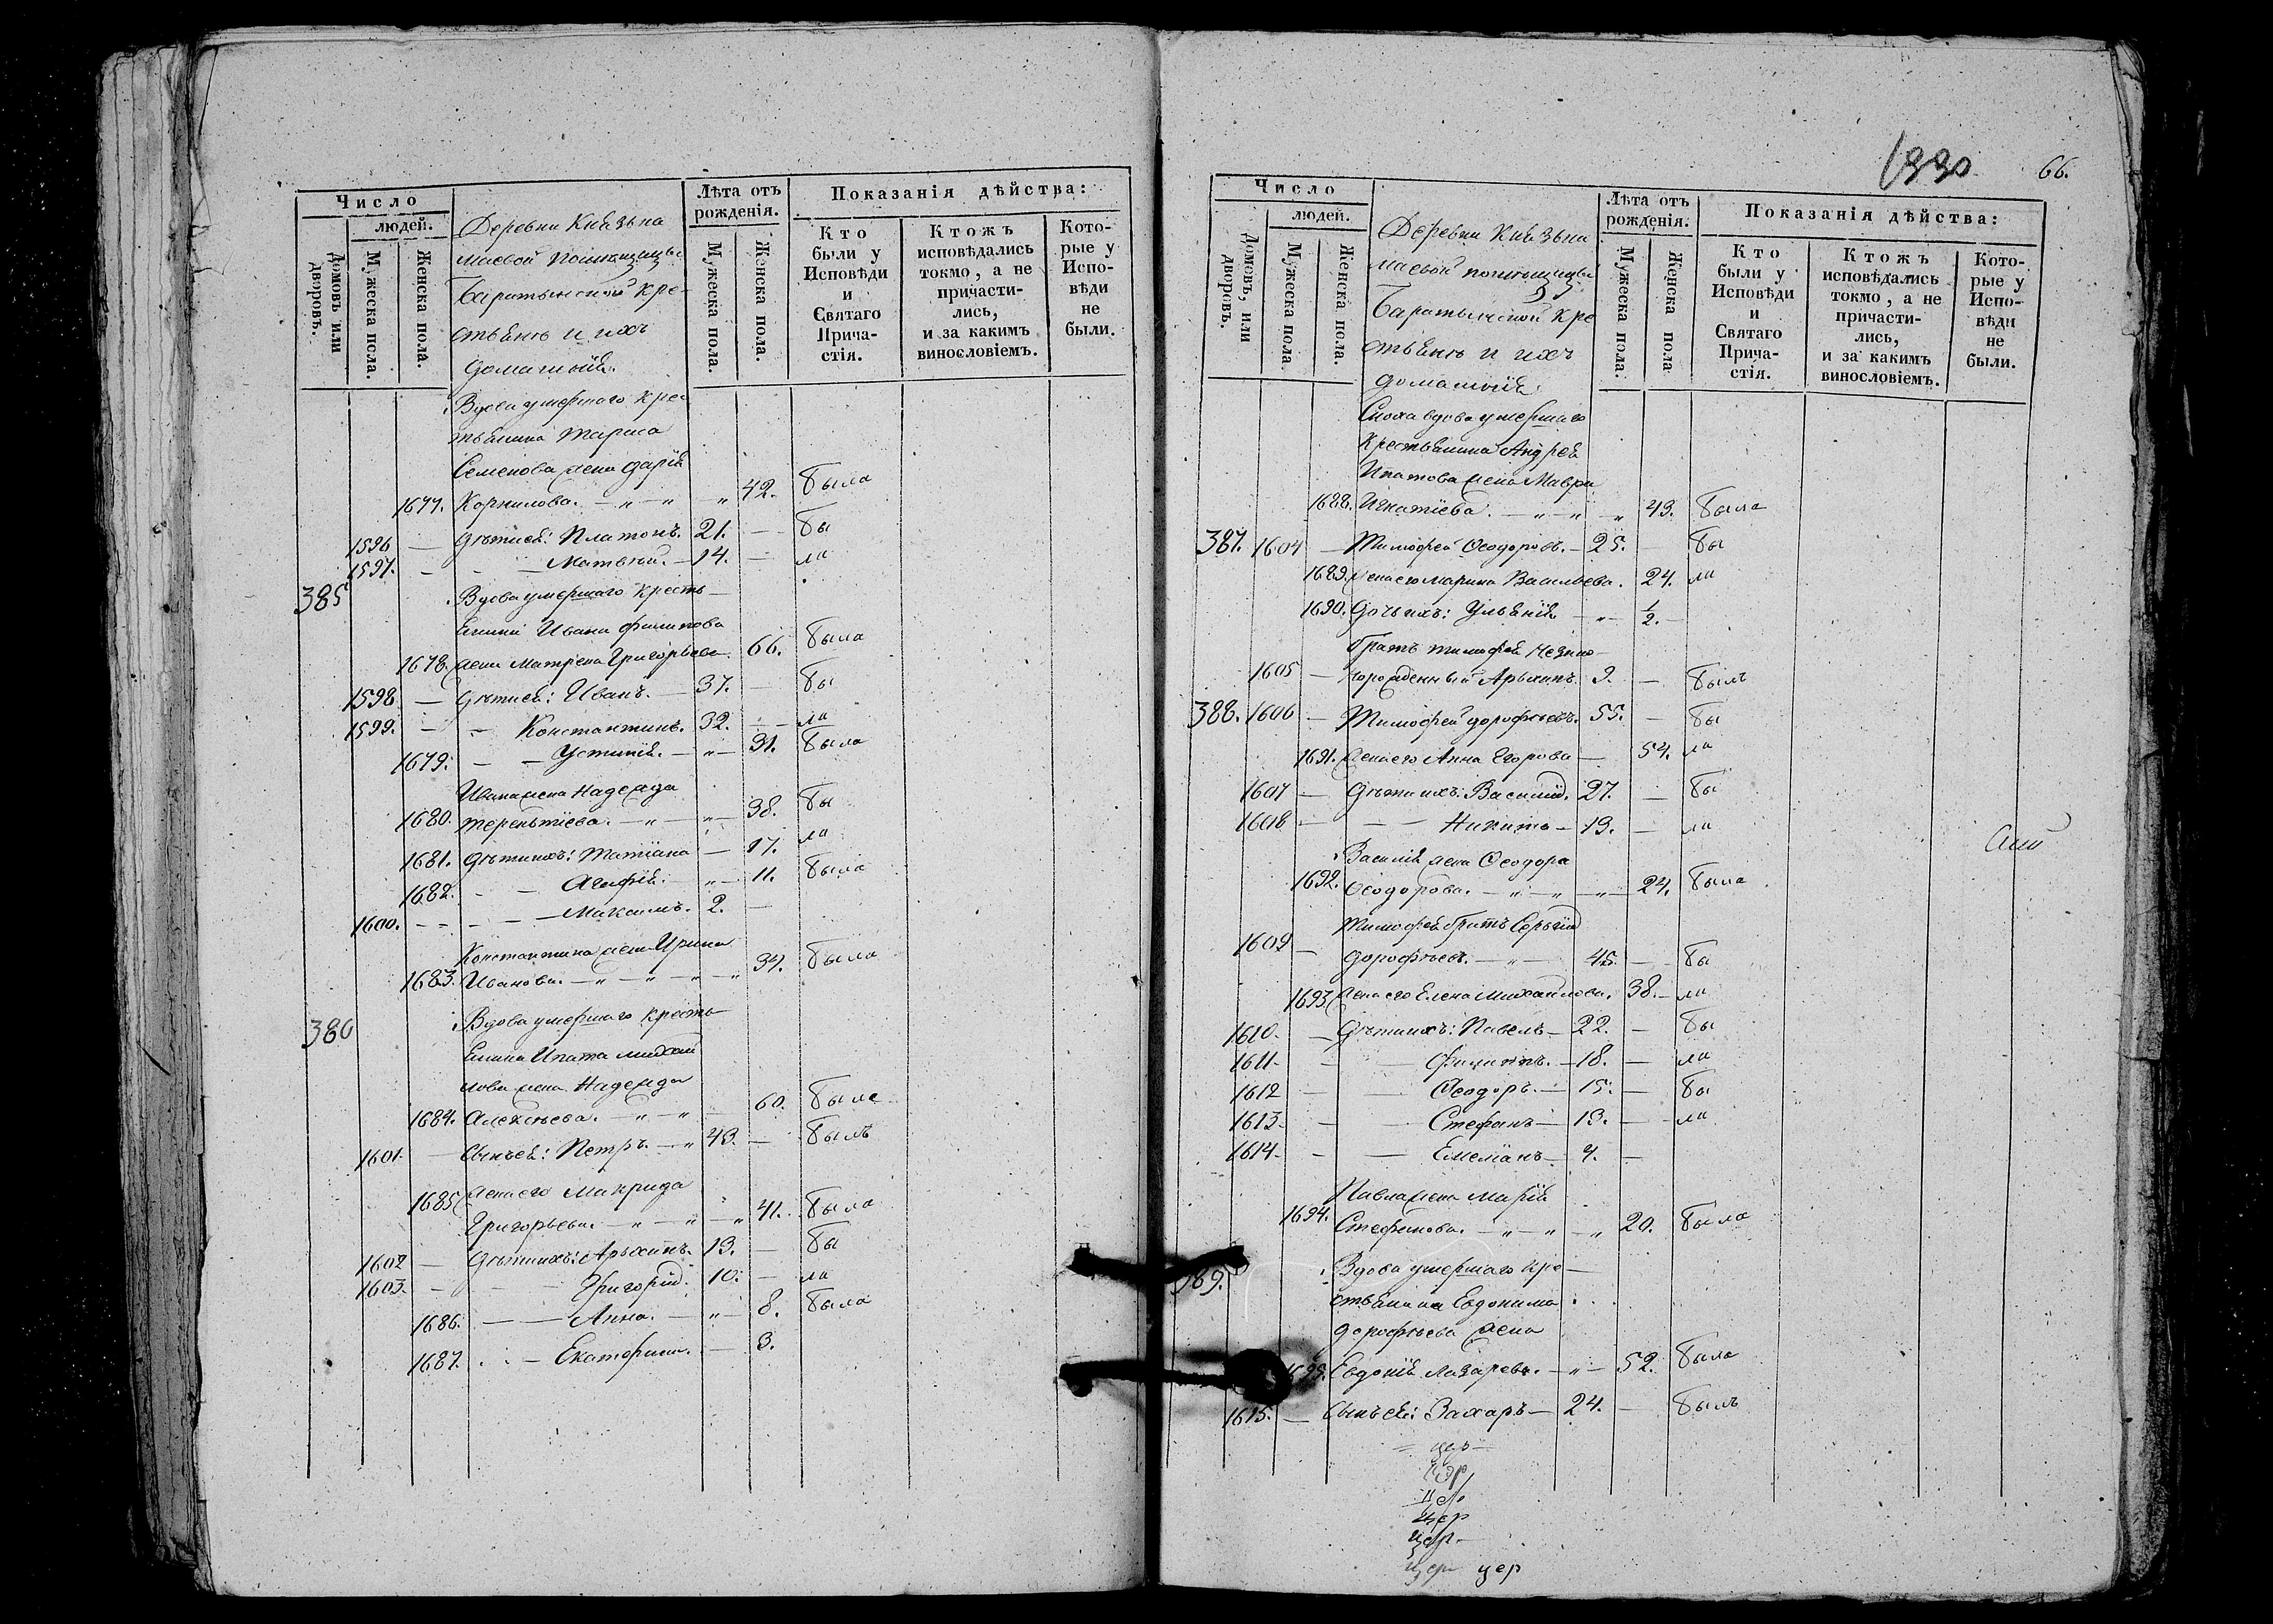 Число
людей.
Домовъ или дворовъ.
Мужеска пола.
Женска пола.
Деревни Князьна
маевой помѣщицы
Баратынской кре-
стьянъ и ихъ
домашнія.
Лѣта отъ рожденія.
Мужеска пола.
Женска пола.
Показанія дѣйства:
Кто были у Исповѣди и Святаго Причастія.
Ктожъ исповѣдались токмо, а не причастились, и за какимъ винословіемъ.
Которые у Исповѣди не были.
Вдова умершаго крес
тьянина Тараса
Семенова жена Дарія
1677. Корнилова. — „ — „ — „ 42. была
1596 — Дѣти ея: Платонъ. 21. — бы
1597. — — Матвѣй. — 14. — ла
385 Вдова умершаго кресть-
янина Ивана Филипова
1678. жена Матрена Григорьева 66. была
1598 — Дѣти ея: Иванъ. — 37. — бы
1599. — — Константинъ. 32. — ла
1679. — — Устинія. — „ — 31. была
Ивана жена Надежда
1680. Терентіева. — „ — „ — 38. бы
1681. Дѣти ихъ: Татіана — 17. ла
1682. — — Агафія. — „ — 11. была
1600. — — — Максимъ. 2. —
Константина жена Ирина
1683. Иванова. — „ — „ — „ 34. была
386 Вдова умершаго кресть-
янина Ипата Михай
лова жена Надежда
1684. Алексѣева. — „ — „ — 60. была
1601. — Сынъ ея: Петръ. — „ 43. — былъ
1685 Жена его Макрида
Григорьева. — „ — „ — „ 41. была
1602 — Дѣти ихъ: Архипъ. 13. — бы
1603. — — Григорій. 10. — ла
1686. — — Анна. — „ — 8. была
1687. — Екатерина. — 3.
1330 66.
Число
людей.
Домовъ, или дворовъ.
Мужеска пола
Женска пола.
Деревни Князьна
маевой помѣщицы
Баратынской кре
стьянъ и ихъ
домашнія.
Лѣта отъ рожденія.
Мужеска пола.
Женска пола
Показанія дѣйства:
Кто были у Исповѣди и Святаго Причастія.
Ктожъ исповѣдались токмо, а не причастились, и за какимъ винословіемъ.
Которые у Исповѣди не были.
Сноха вдова умершаго
крестьянина Андрея
Ипатова жена Мавра
1688. Игнатіева. — „ — „ — „ 43. была
387. 1604 — Тимофей Ѳеодоровъ. — 25. — бы
1689. Жена его Марина Васильева. 24. ла
1690. Дочь ихъ: Ульянія — „ — 1/2. —
Братъ Тимофея незако-
1605 — норожденный Архипъ. 9. — былъ
388. 1606 — Тимофей Дорофѣевъ. 55. — бы
1691. Жена его Анна Егорова — 54. ла
1607 — Дѣти ихъ: Василій. 27. — бы
1608 — — Никита — 19. — ла
Василія жена Ѳеодора
1692. Ѳеодорова. — „ — „ — „ — 24. была
Тимофея братъ Сергій
1609 — Дорофѣевъ. — „ — 45. — бы
1693. Жена его Елена Михайлова. 38. — ла
1610. — Дѣти ихъ: Павелъ — 22. — бы
1611. — — Филиппъ. — 18. — ла
1612 — — Ѳеодоръ. — 15. — бы
1613. — — Стефанъ — 13. — ла
1614. — — Емеліанъ — 4. —
Павла жена Марія
1694. Стефанова. — „ — „ — „ 20. была
389. Вдова умершаго кре-
стьянина Евдокима
Дорофѣева жена
1695. Евдокія Лазарева. — „ — 52. была
1615. — Сынъ ея: Захаръ — 24. — былъ
цер
цер
цер
цер цер